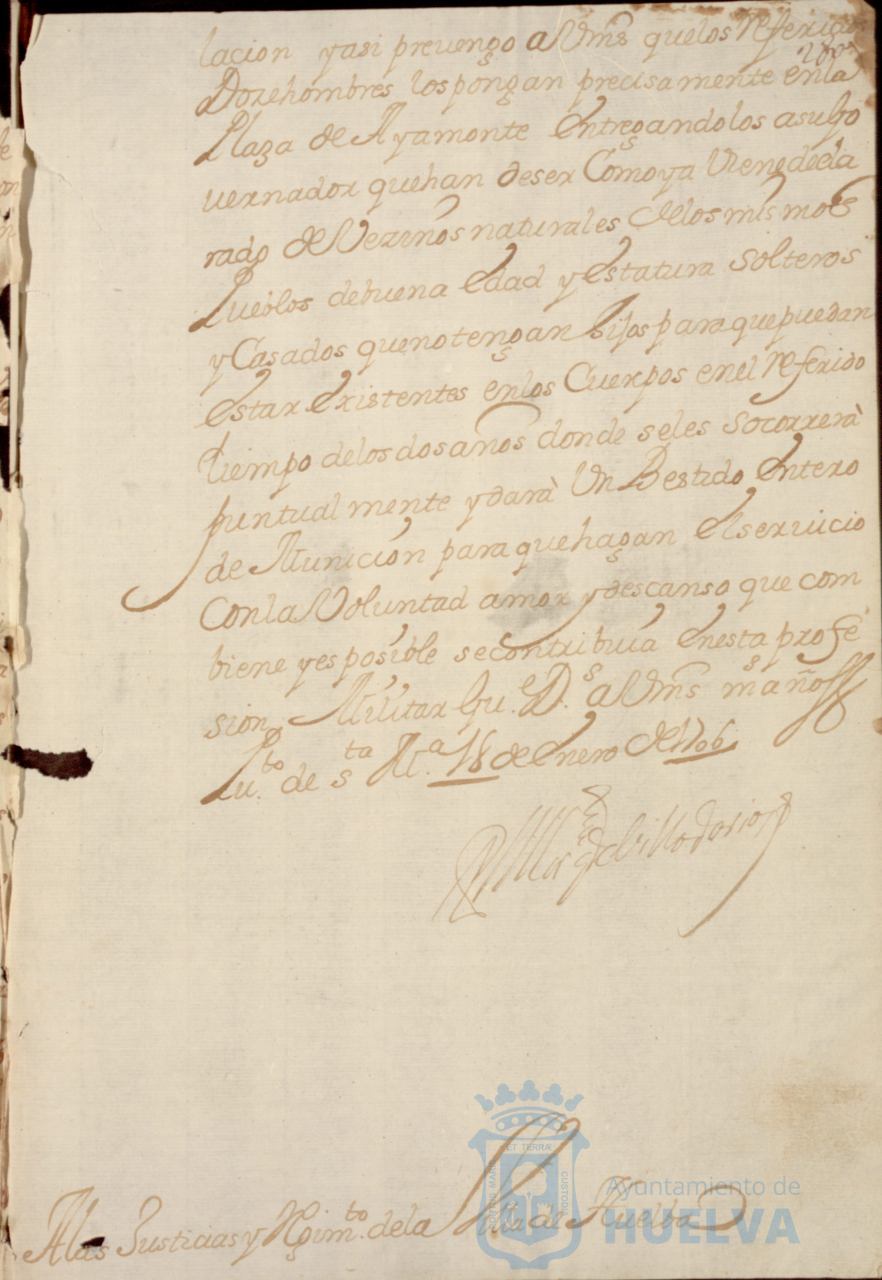 lacion yasi prevengo a Vms quelos Referidos
Doze hombres lospongan precisamente enla
Plaza de Ayamonte Entregandolos asu Go
vernador quehan deser Como ya Viene decla
rado de Vezinos naturales delos mismos
Pueblos debuena Edad y Estatura Solteros
y Casados quenotengan hijos paraquepuedan
estar Existentes enlos Cuerpos enel Referido
tiempo delos dos años donde seles Socorrerà
puntualmente ydarà Un Bestido Entero
de Munición para quehagan Elseruicio
Conla Voluntad amor ydescanso que com
biene yes posible secontribuia Enesta profe
sion Militar Gu.e D.s a Vms ms años
Pu.to de sta Ma. 18 de Enero de 1706
El Marqs de Villadarias
Alas Justicias y Regimto. dela Villa de Huelba
PORTUS MARIS ET TERRÆ CUSTODIA
Ayuntamiento de
HUELVA